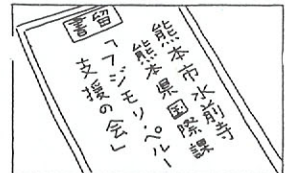 書留
熊本市水前寺
熊本県国際課
「フジモリ・ペルー
支援の会」